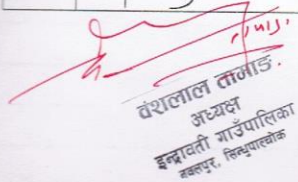 वंशलाल तामाङ
अध्यक्ष
इन्द्रावती गाउँपालिका
नवलपुर, सिन्धुपाल्चोक